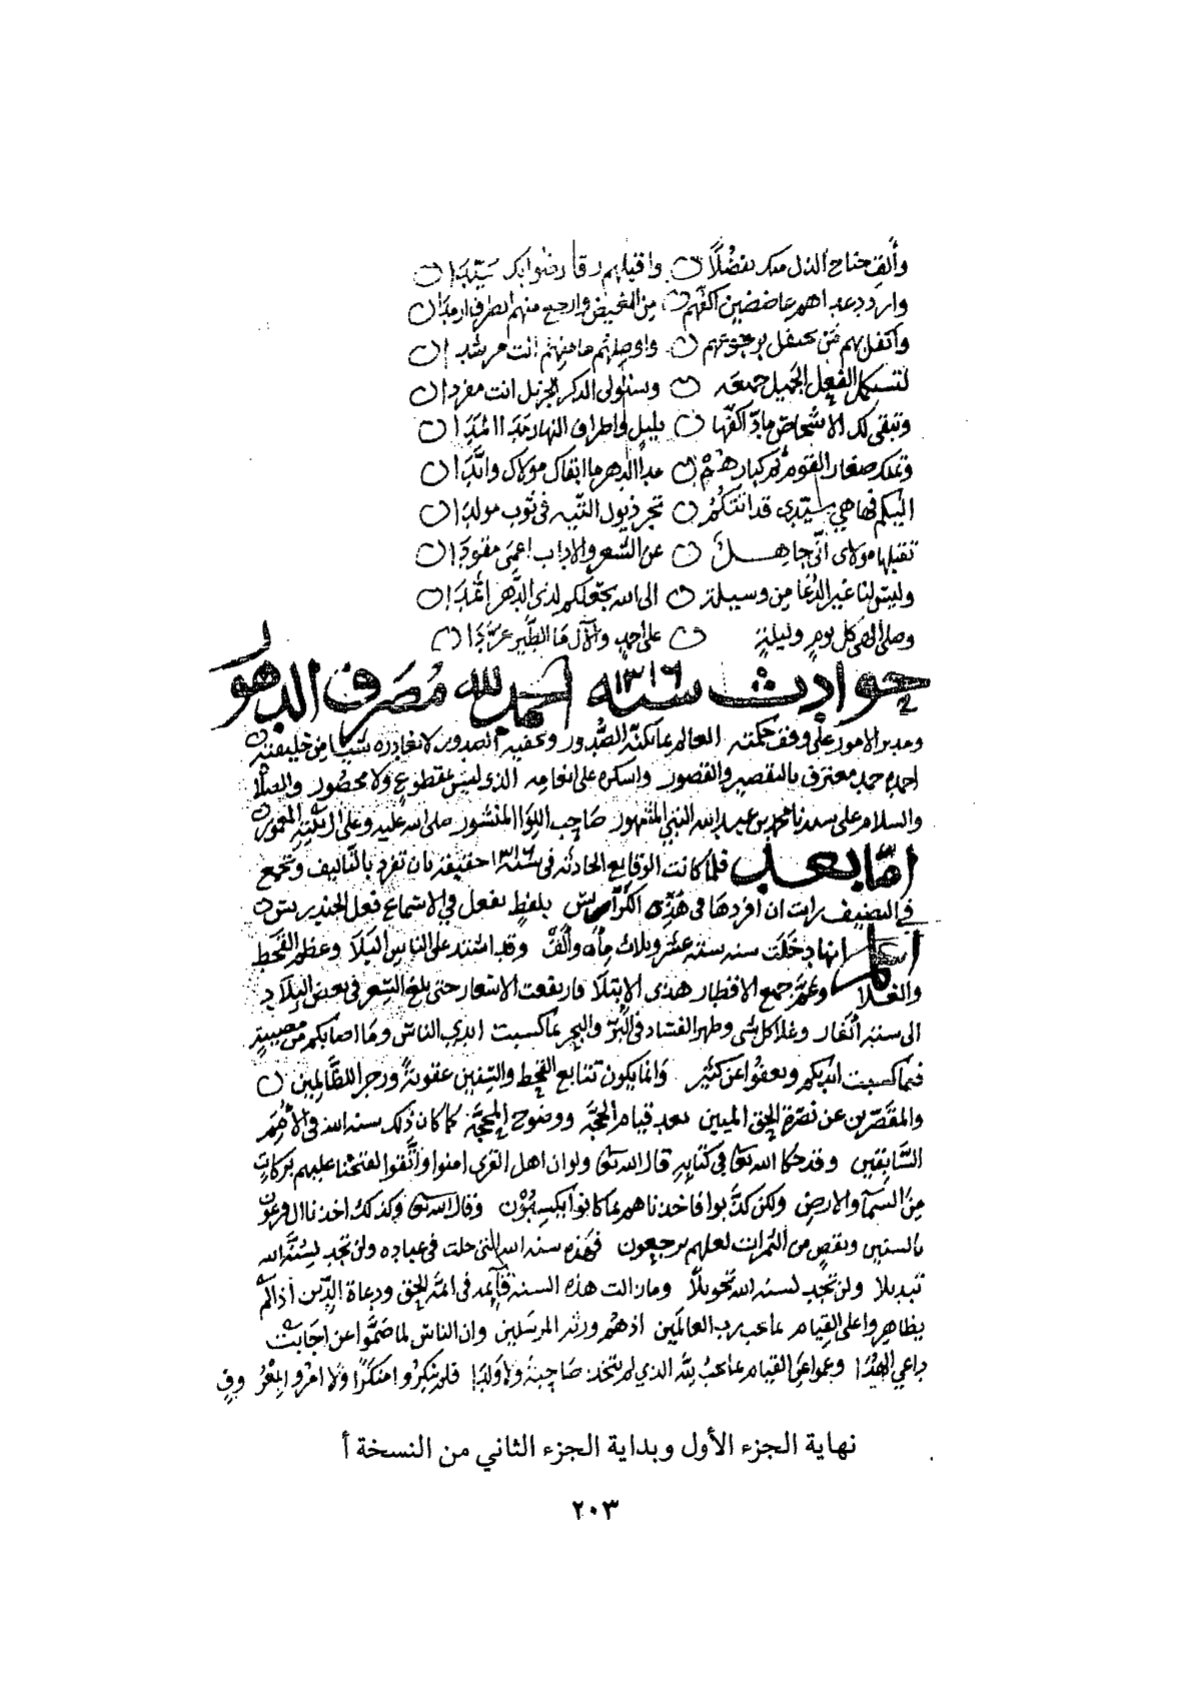 وألق جناح الذل منك تفضلا واقبلهم رقا رضوا بك سيدا
واردد عداهم عاضضين أكفهم من الغيض وارجع منهم الطرف ارمدا
لتستكمل الفعل الجميل جميعه وستولي الذكر الجزيل انت مفردا
وتبقى لك الاشخاص مادة أكفها بليل واطراف النهار
وتملك صغار القوم ثم كبارهم مدا الدهر ما ابقاك مولاك والندا
اليكم فها هي سيدي قد اتتكم تجر ذيول التيه في ثوب مولدا
تقبلها مولاي اني جاهل عن الشعر والاداب اعمى مقودا
وليس لنا غير الدعا من وسيلة الى الله يجعلكم لذى الدهر اثمدا
وصلى الهي كل يوم وليلة على احمد والآل ما الطير غردا
حوادث سنة ١٣١٦ الحمد لله مصرف الدهور
ومدبر الامور على وفق حكمته العالم بما تكنه الصدور وتخفيه الصدور لا تغادره شيئا من خليقته
احمده حمد معترف بالتقصير والقصور واشكره على انعامه الذي ليس بمقطوع ولا محصور والصلاة
والسلام على سيدنا محمد بن عبد الله النبي المشهور صاحب اللوا المنشور صلى الله عليه وعلى ال بيته المعمور
اما بعد فلما كانت الوقايع الحادثة في سنة ١٣١٦ حقيقة بان تفرد بالتأليف وتجمع
في التصنيف رايت ان افردها في هذه الكراريس بلفظ يفعل في الاسماع فعل الخندريس
اعلم انها دخلت سنة ستة عشر وثلاث مأة وألف وقد اشتد على الناس البلا وعظم القحط
والغلا وعم جميع الاقطار هذى الابتلا فارتفعت الاسعار حتى بلغ السعر في بعض البلاد
الى ستة أنفار وغلا كل شي وظهر الفساد في البر والبحر بما كسبت ايدي الناس وما اصابكم من مصيبة
فبما كسبت ايديكم ويعفوا عن كثير وانما يكون تتابع القحط والسنين عقوبة وزجرا للظالمين
والمقصرين عن نصرة الحق المبين بعد قيام الحجة ووضوح المحجة كما كان ذلك سنة الله في الأمم
السابقين وقد حكا الله تعالى في كتابه قال الله تعالى ولو ان اهل القرى امنوا واتقوا لفتحنا عليهم بركات
من السماء والارض ولكن كذبوا فاخذناهم بما كانوا يكسبون وقال الله تعالى وكذلك اخذنا ال فرعون
بالسنين ونقص من الثمرات لعلهم يرجعون فهذه سنة الله التي خلت في عباده ولن تجد لسنة الله
تبديلا ولن تجد لسنة الله تحويلا وما زالت هذه السنة قائمة في ائمة الحق ودعاة الدين اذا لم
يظاهروا على القيام بما يحب رب العالمين اذ هم ورثة المرسلين وان الناس لما صموا عن اجابت
داعي الهدا وعموا عن القيام بما يحب لله الذي لم يتخذ صاحبة ولا ولدا فلم ينكروا منكرا ولا امروا بالمعر وفي
نهاية الجزء الأول وبداية الجزء الثاني من النسخة أ
٢٠٣